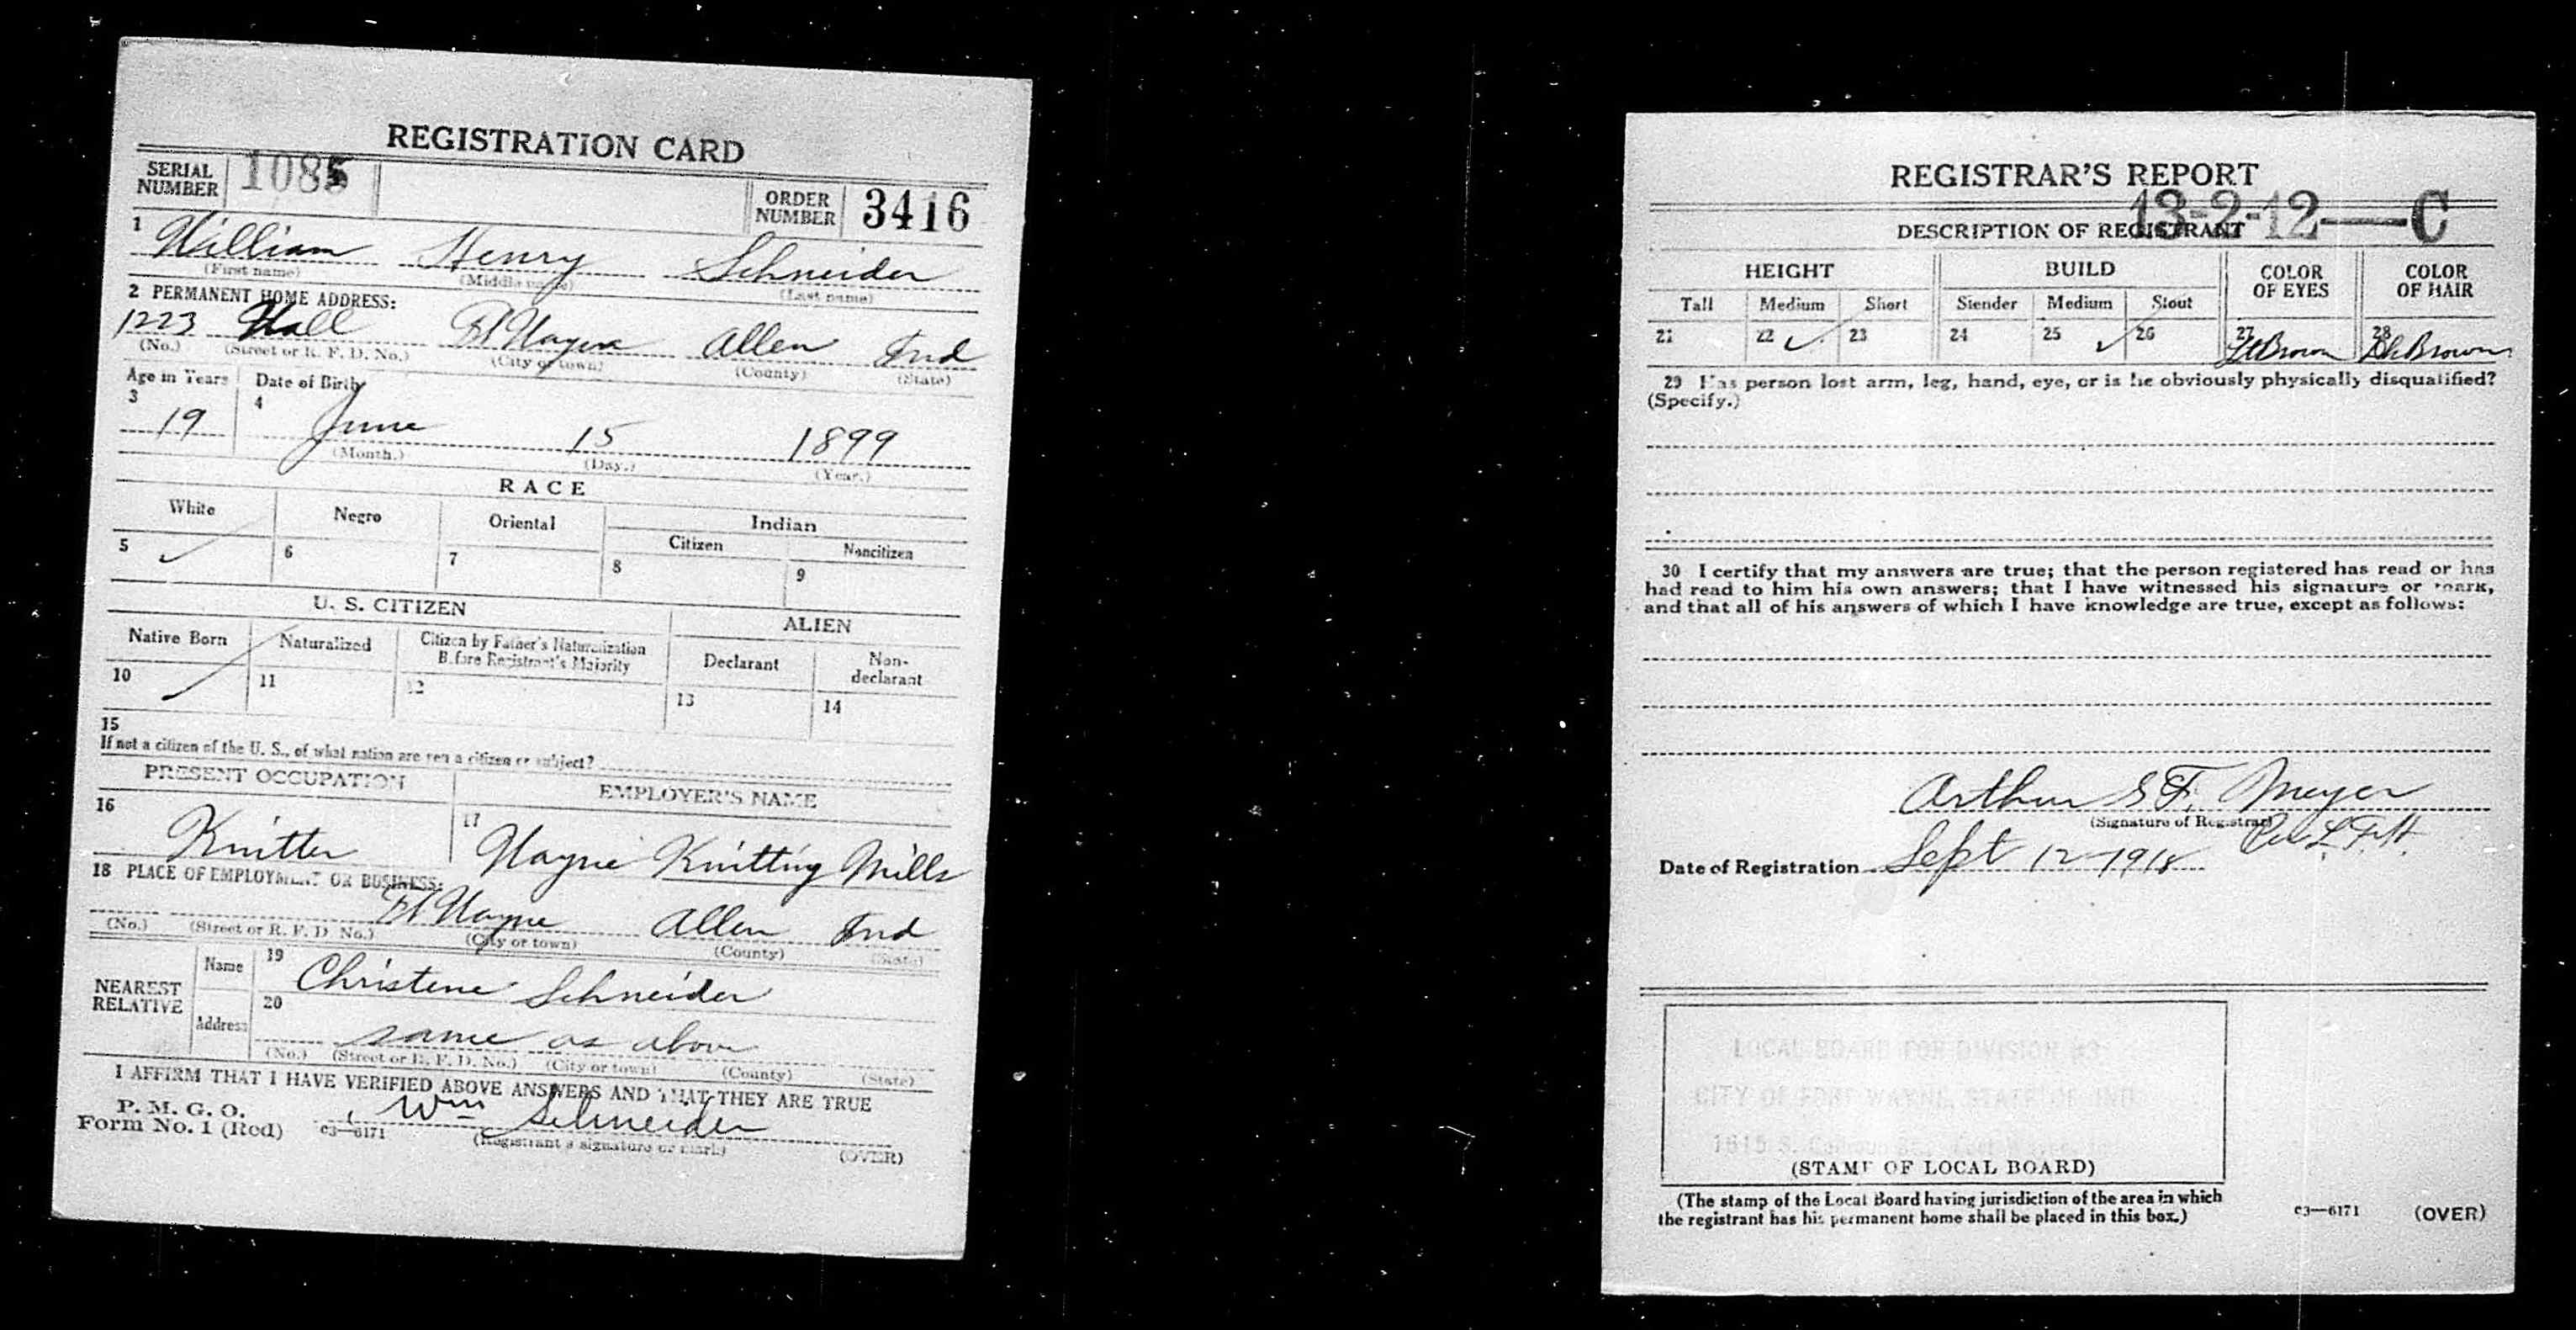 REGISTRATION CARD
SERIAL NUMBER 1085 ORDER NUMBER 3416
1 William Henry Schneider
(First name) (Middle name) (Last name)
2 PERMANENT HOME ADDRESS:
1223 Wall Ft Wayne Allen Ind
(No.) (Street or R. F. D. No.) (City or town) (County) (State)
Age in Years Date of Birth
3 4
19 June 15 1899
(Month.) (Day.) (Year.)
RACE
White Negro Oriental Indian
Citizen Noncitizen
5 ✓ 6 7 8 9
U. S. CITIZEN ALIEN
Native Born Naturalized Citizen by Father's Naturalization Before Registrant's Majority Declarant Non-declarant
10 ✓ 11 12 13 14
15
If not a citizen of the U. S., of what nation are you a citizen or subject?
PRESENT OCCUPATION EMPLOYER'S NAME
16 Knitter 17 Wayne Knitting Mills
18 PLACE OF EMPLOYMENT OR BUSINESS:
Ft Wayne Allen Ind
(No.) (Street or R. F. D. No.) (City or town) (County) (State)
NEAREST RELATIVE Name 19 Christene Schneider
Address 20 same as above
(No.) (Street or R. F. D. No.) (City or town) (County) (State)
I AFFIRM THAT I HAVE VERIFIED ABOVE ANSWERS AND THAT THEY ARE TRUE
P. M. G. O.
Form No. 1 (Red) c3—6171 Wm Schneider
(Registrant's signature or mark) (OVER)
REGISTRAR'S REPORT
13-2-12—C
DESCRIPTION OF REGISTRANT
HEIGHT BUILD COLOR OF EYES COLOR OF HAIR
Tall Medium Short Slender Medium Stout
21 22 ✓ 23 24 25 ✓ 26 27 Lt Brown 28 Dk Brown
29 Has person lost arm, leg, hand, eye, or is he obviously physically disqualified?
(Specify.)
30 I certify that my answers are true; that the person registered has read or has
had read to him his own answers; that I have witnessed his signature or mark,
and that all of his answers of which I have knowledge are true, except as follows:
Arthur F. Meyer
(Signature of Registrar)
Date of Registration Sept 12-1918
LOCAL BOARD FOR DIVISION #3
CITY OF FORT WAYNE, STATE OF IND
1615 S. Calhoun
(STAMP OF LOCAL BOARD)
(The stamp of the Local Board having jurisdiction of the area in which
the registrant has his permanent home shall be placed in this box.)
c3—6171 (OVER)